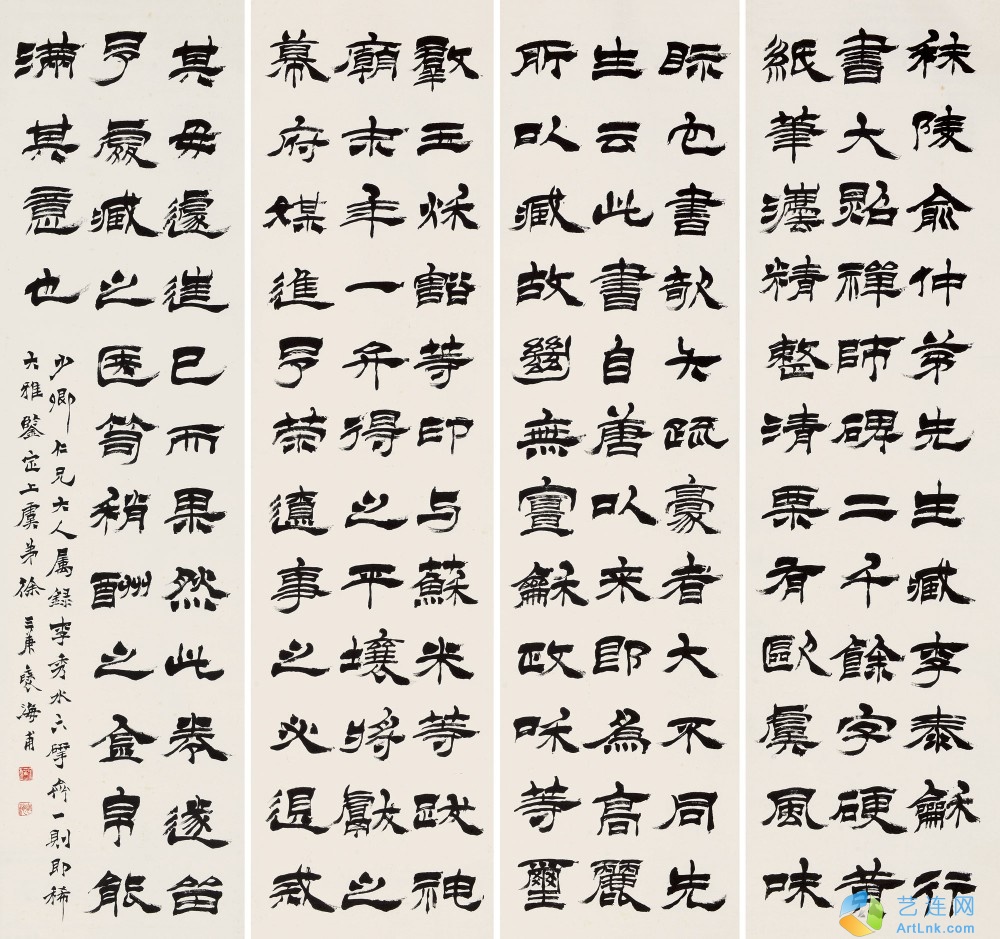 秣陵俞仲茅先生藏李泰龢行
書大照禪師碑二千餘字硬黃
紙筆灋精整清栗有歐虞風味
眎它書欹仄疏豪者大不同先
生云此書自唐以來即為高麗
所以藏故絕無宣龢政和等璽
群玉秌壑等印与蘇米等跋神
廟末年一弁得之平壤將獻之
幕府媒進亨策遼事之必退戒
其毋遽進已而果然此卷遂留
亨處藏之匧笥稍酬之金帛能
滿其意也
少卿仁兄大人属録李秀水六研齋一則即稀
大雅鑒定上虞弟徐三庚褎海甫
艺连网
ArtLnk.com